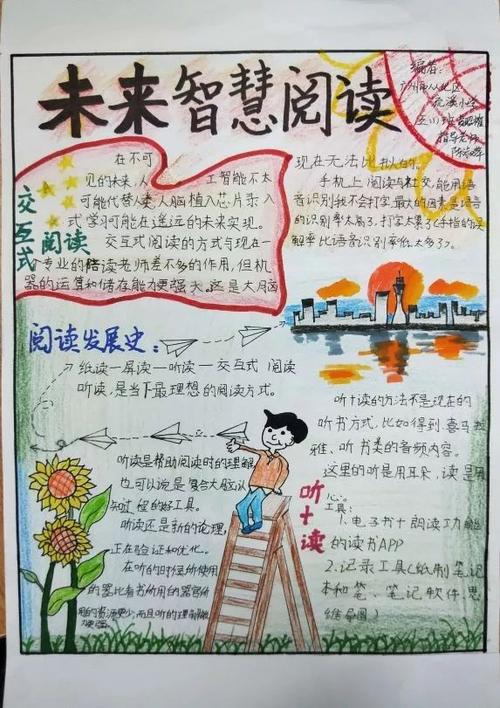 未来智慧阅读
编苗:
广州市从化区
流溪小学
五(1)班
指导老师
交互式阅读
在不可
见的未来,人工智能不太
可能代替人类,人脑植入芯片录入
式学习可能在遥远的未来实现。
交互式阅读的方式与现在一
个专业的陪读老师差不多的作用,但机
器的运算和储存能力更强大。这是大脑
现在无法比拟的。
手机上阅读与社交,能用语
音识别我不会打字,最大的因素是语音
的识别率太高了,打字太累了手指的误
解率比语音识别率低太多了。
阅读发展史:
纸读一屏读一听读一交互式阅读
听读,是当下最理想的阅读方式。
听读是帮助阅读时的理解
也可以说是复合大脑认
知过程的好工具。
听读还是新的论理,
正在验证和优化。
在听的时候所使用
的器比看书所用的器官所
用的资源更少,而且听的理解能
力更强。
听+读
听+读的方法不是现在的
听书方式,比如得到、喜马拉
雅、听书类的音频内容。
这里的听是用耳朵,读是用
心。
工具:
1、电子书+朗读功能
的读书APP
2、记录工具(纸制笔记
本和笔、笔记软件、思
维导图)